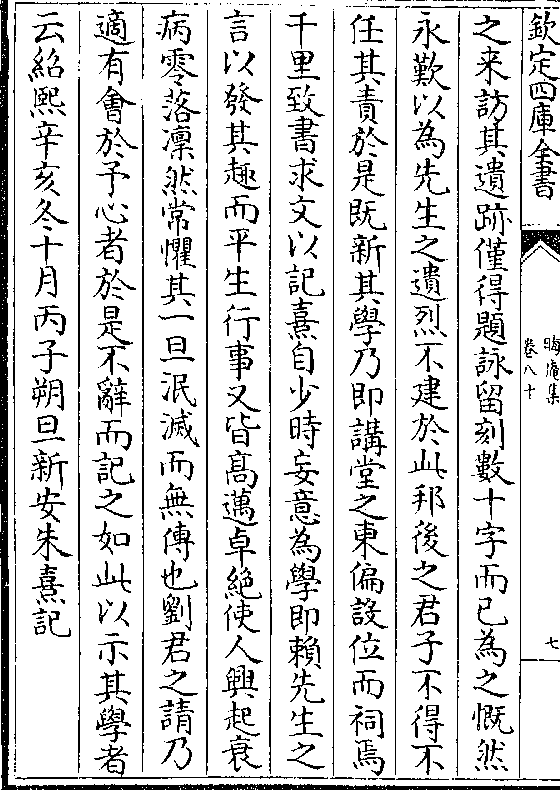 欽定四庫全書
晦庵集
卷八十
七
之来訪其遺跡僅得題詠留刻數十字而已為之慨然
永歎以為先生之遺烈不建於此邦後之君子不得不
任其責於是既新其學乃即講堂之東偏設位而祠焉
千里致書求文以記熹自少時妄意為學即賴先生之
言以發其趣而平生行事又皆髙邁卓絶使人興起衰
病零落凛然常懼其一旦泯滅而無傳也劉君之請乃
適有會於予心者於是不辭而記之如此以示其學者
云紹熙辛亥冬十月丙子朔旦新安朱熹記